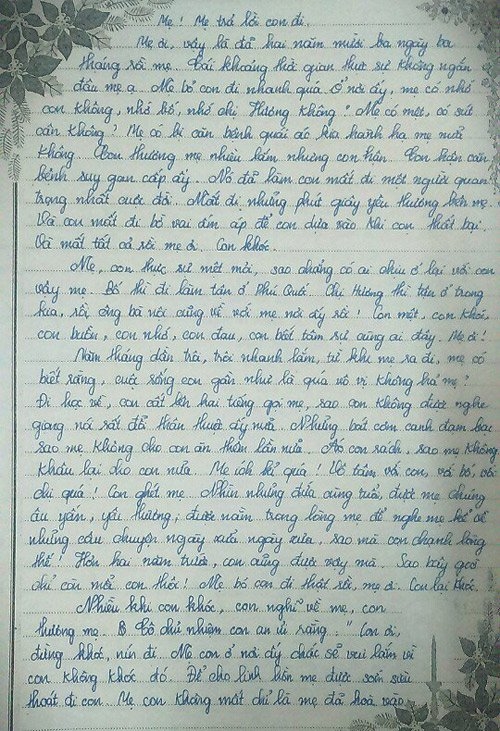 Mẹ! Mẹ trả lời con đi.
Mẹ ơi, vậy là đã hai năm mười ba ngày ba
tháng rồi mẹ. Cái khoảng thời gian thực sự không ngắn
đâu mẹ ạ. Mẹ bỏ con đi nhanh quá. Ở nơi ấy, mẹ có nhớ
con không, nhớ bố, nhớ chị Hương không? Mẹ có mệt, có sút
cân không? Mẹ có bị căn bệnh quái ác kia hành hạ mẹ nữa
không. Con thương mẹ nhiều lắm nhưng con hận. Con hận căn
bệnh suy gan cấp ấy. Nó đã làm con mất đi một người quan
trọng nhất cuộc đời. Mất đi những phút giây yêu thương bên mẹ.
Và con mất đi bờ vai ấm áp để con dựa vào khi con thất bại.
Và mất tất cả rồi mẹ ơi. Con khóc.
Mẹ, con thực sự mệt mỏi, sao chẳng có ai chịu ở lại với con
vậy mẹ. Bố thì đi làm tận ở Phú Quới. Chị Hương thì tận ở trong
kia, rồi ông bà nội cũng về với mẹ nơi ấy rồi! Con mệt, con khóc,
con buồn, con nhớ, con đau, con biết tâm sự cùng ai đây. Mẹ ơi!
Năm tháng dần trôi, trôi nhanh lắm, từ khi mẹ ra đi, mẹ có
biết rằng, cuộc sống con gần như là quá vô vị không hả mẹ?
Đi học về, con cất lên hai tiếng gọi mẹ, sao con không được nghe
giọng nói rất đỗi thân thuộc ấy nữa. Những bát cơm canh đạm bạc
sao mẹ không cho con ăn thêm lần nữa. Áo con rách, sao mẹ không
khâu lại cho con nữa. Mẹ ích kỉ quá! Vô tâm với con, với bố, với
chị quá! Con ghét mẹ. Nhìn những đứa cùng tuổi, được mẹ chúng
âu yếm, yêu thương, được nằm trong lòng mẹ để nghe mẹ kể về
những câu chuyện ngày xửa ngày xưa, sao mà con chạnh lòng
thế! Hơn hai năm trước, con cũng được vậy mà. Sao bây giờ
chỉ còn mỗi con thôi! Mẹ bỏ con đi thật rồi, mẹ ơi. Con lại khóc.
Nhiều khi con khóc, con nghĩ về mẹ, con
thương mẹ. Cô chủ nhiệm con an ủi rằng: "Con ơi,
đừng khóc, nín đi. Mẹ con ở nơi ấy chắc sẽ vui lắm vì
con không khóc đó. Để cho linh hồn mẹ được sớm siêu
thoát đi con. Mẹ con không mất chỉ là mẹ đã hoà vào